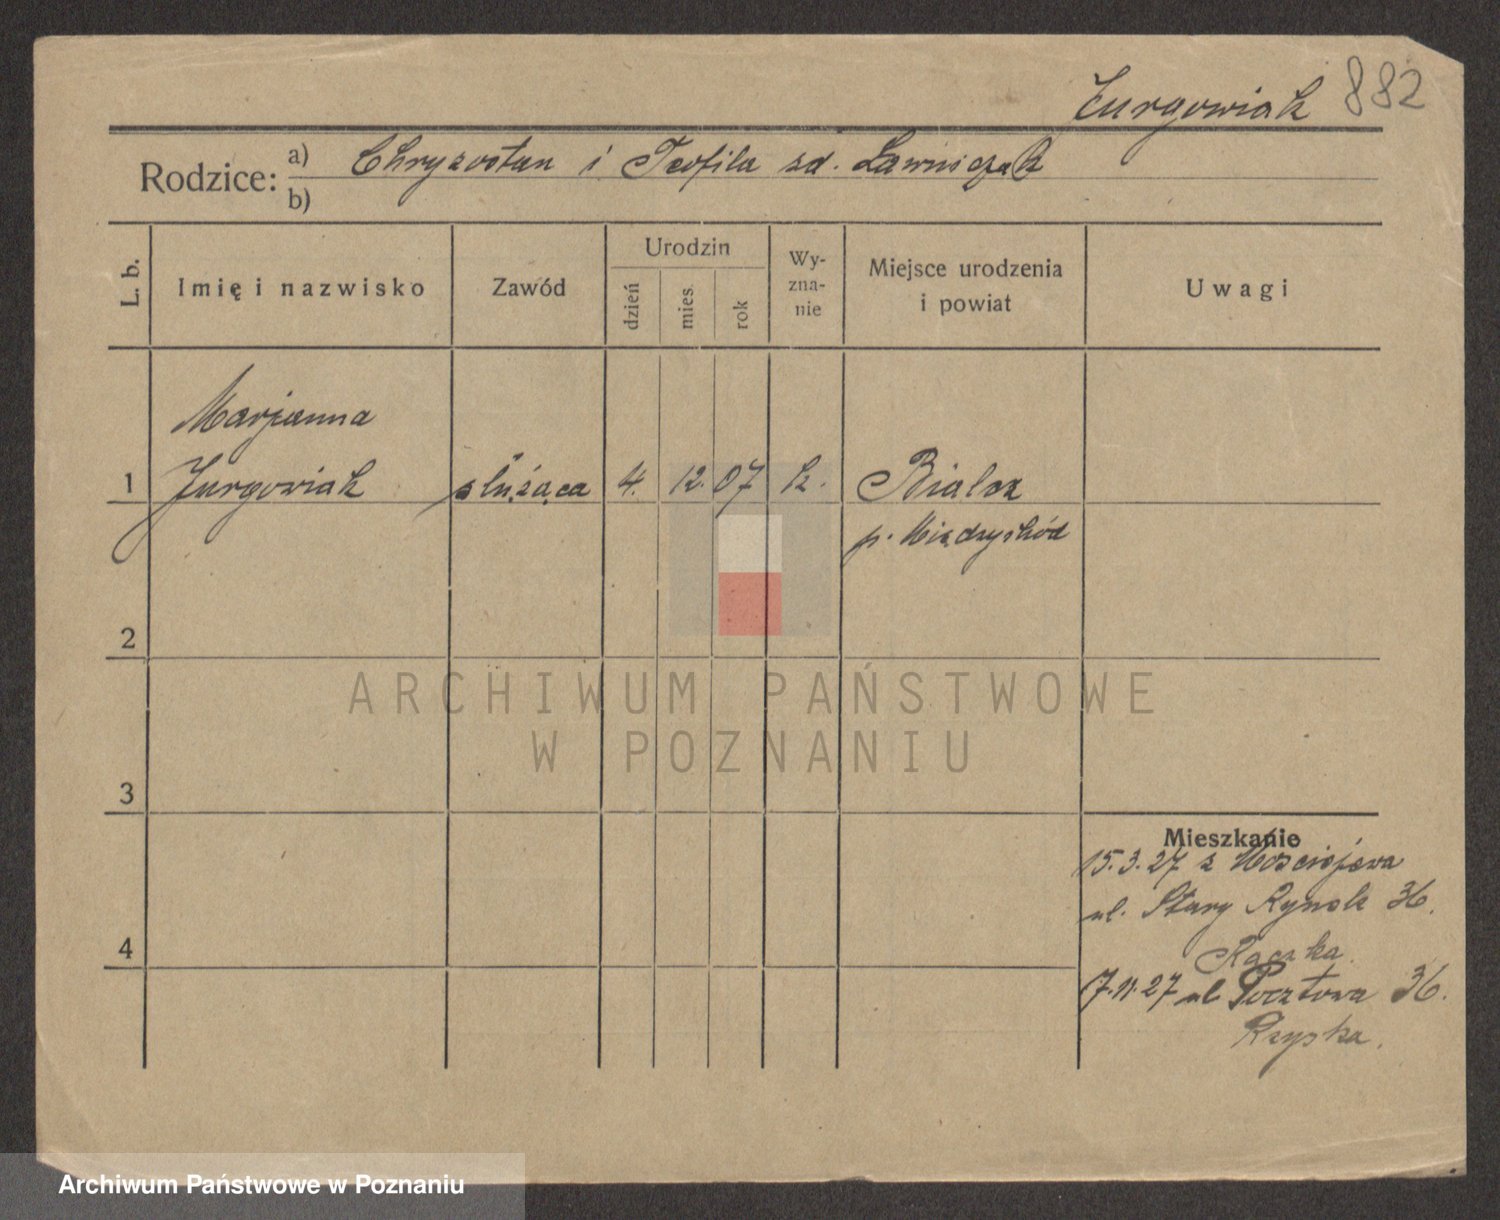 Jurgowiak 882
Rodzice: a) Chryzostan i Teofila zd. Ławniczak
b)
L. b. Imię i nazwisko Zawód Urodzin dzień mies. rok Wy-zna-nie Miejsce urodzenia i powiat Uwagi
Marjanna
1 Jurgowiak służąca 4. 12. 07 k.
p. Międzychód
2
3
4
Mieszkanie
15.3.27 z
ul. Stary Rynek 36.
Kaczka.
7.11.27 ul. Pocztowa 36.
ARCHIWUM PAŃSTWOWE
W POZNANIU
Archiwum Państwowe w Poznaniu